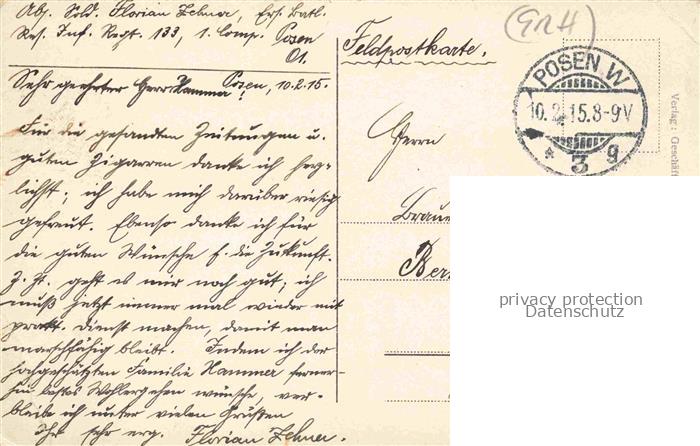 Abs. Sold. Florian Zehner, Ers. Batl.
Res. Inf. Regt. 133, 1. Comp. Posen
O1.
Posen, 10.2.15.
Sehr geehrter Herr Hammer!
Für die gesandten Zeitungen u.
guten Zigarren danke ich herz-
lichst; ich habe mich darüber riesig
gefreut. Ebenso danke ich für
die guten Wünsche f. die Zukunft.
Z. Zt. geht es mir noch gut; ich
muß jetzt immer mal wieder mit
prakt. Dienst machen, damit man
marschfähig bleibt. Indem ich der
hochgeschätzten Familie Hammer ferner-
hin bestes Wohlergehen wünsche, ver-
bleibe ich unter vielen Grüßen
Ihr sehr erg. Florian Zehner.
GRH
Feldpostkarte.
POSEN W
10.2.15.8-9V
* 3 g
Herrn
Braue
Ber
Verlag: Geschäft
privacy protection
Datenschutz